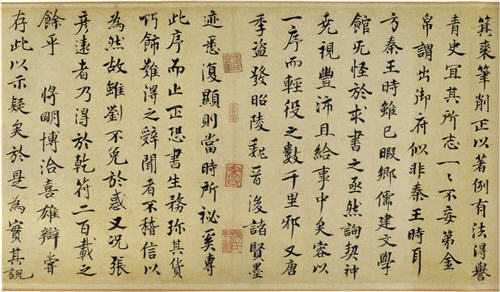 箕來筆削正以著例有法得譽
青史冝其所志一〻不妄第金
帛謂出御府似非秦王時耳
方秦王時雖已暇鄉儒建文學
館旡怪於求書之亟然詢契神
堯視豐沛且給事中矣容以
一序而輕役之數千里邪又唐
季盜發昭陵魏晉後諸賢墨
迹悉復顯則當時所祕奚專
此序而止正恐書生務珎其貨
巧飾難得之辭聞者不稽信以
為然故雖劉不免於惑又況張
彥遠者乃得於乾符二百載之
餘乎 將明博洽喜雄辯嘗
存此以示疑矣於是為實其説